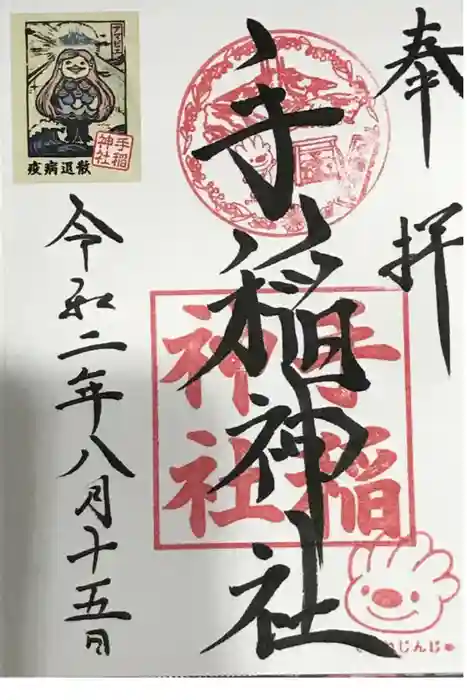 奉拝
手稲神社
手稲
神社
令和二年八月十五日
アマビエ
手稲
神社
疫病退散
じんじ